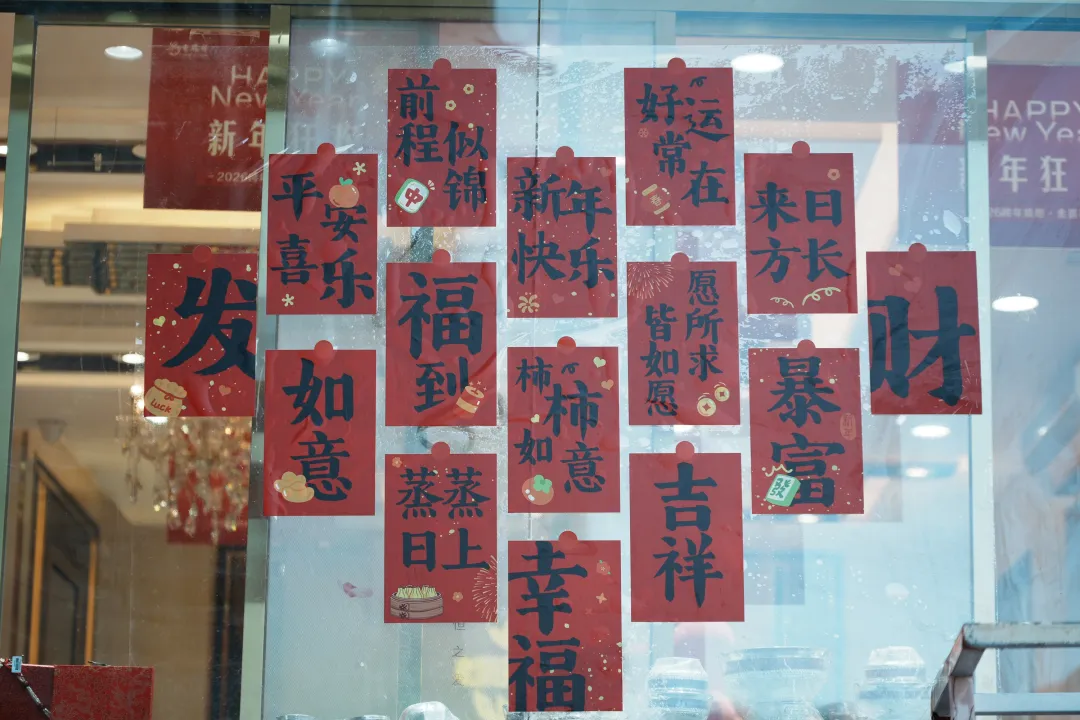 HAPPY
New Year
新年
2026
发
luck
平安
喜乐
如意
前程
似锦
中
福
到
蒸蒸
日上
新年
快乐
柿柿
如意
幸
福
好运
常在
愿所求
皆如愿
吉
祥
来日
方长
暴
富
發
财
HAPPY
ew Year
年狂